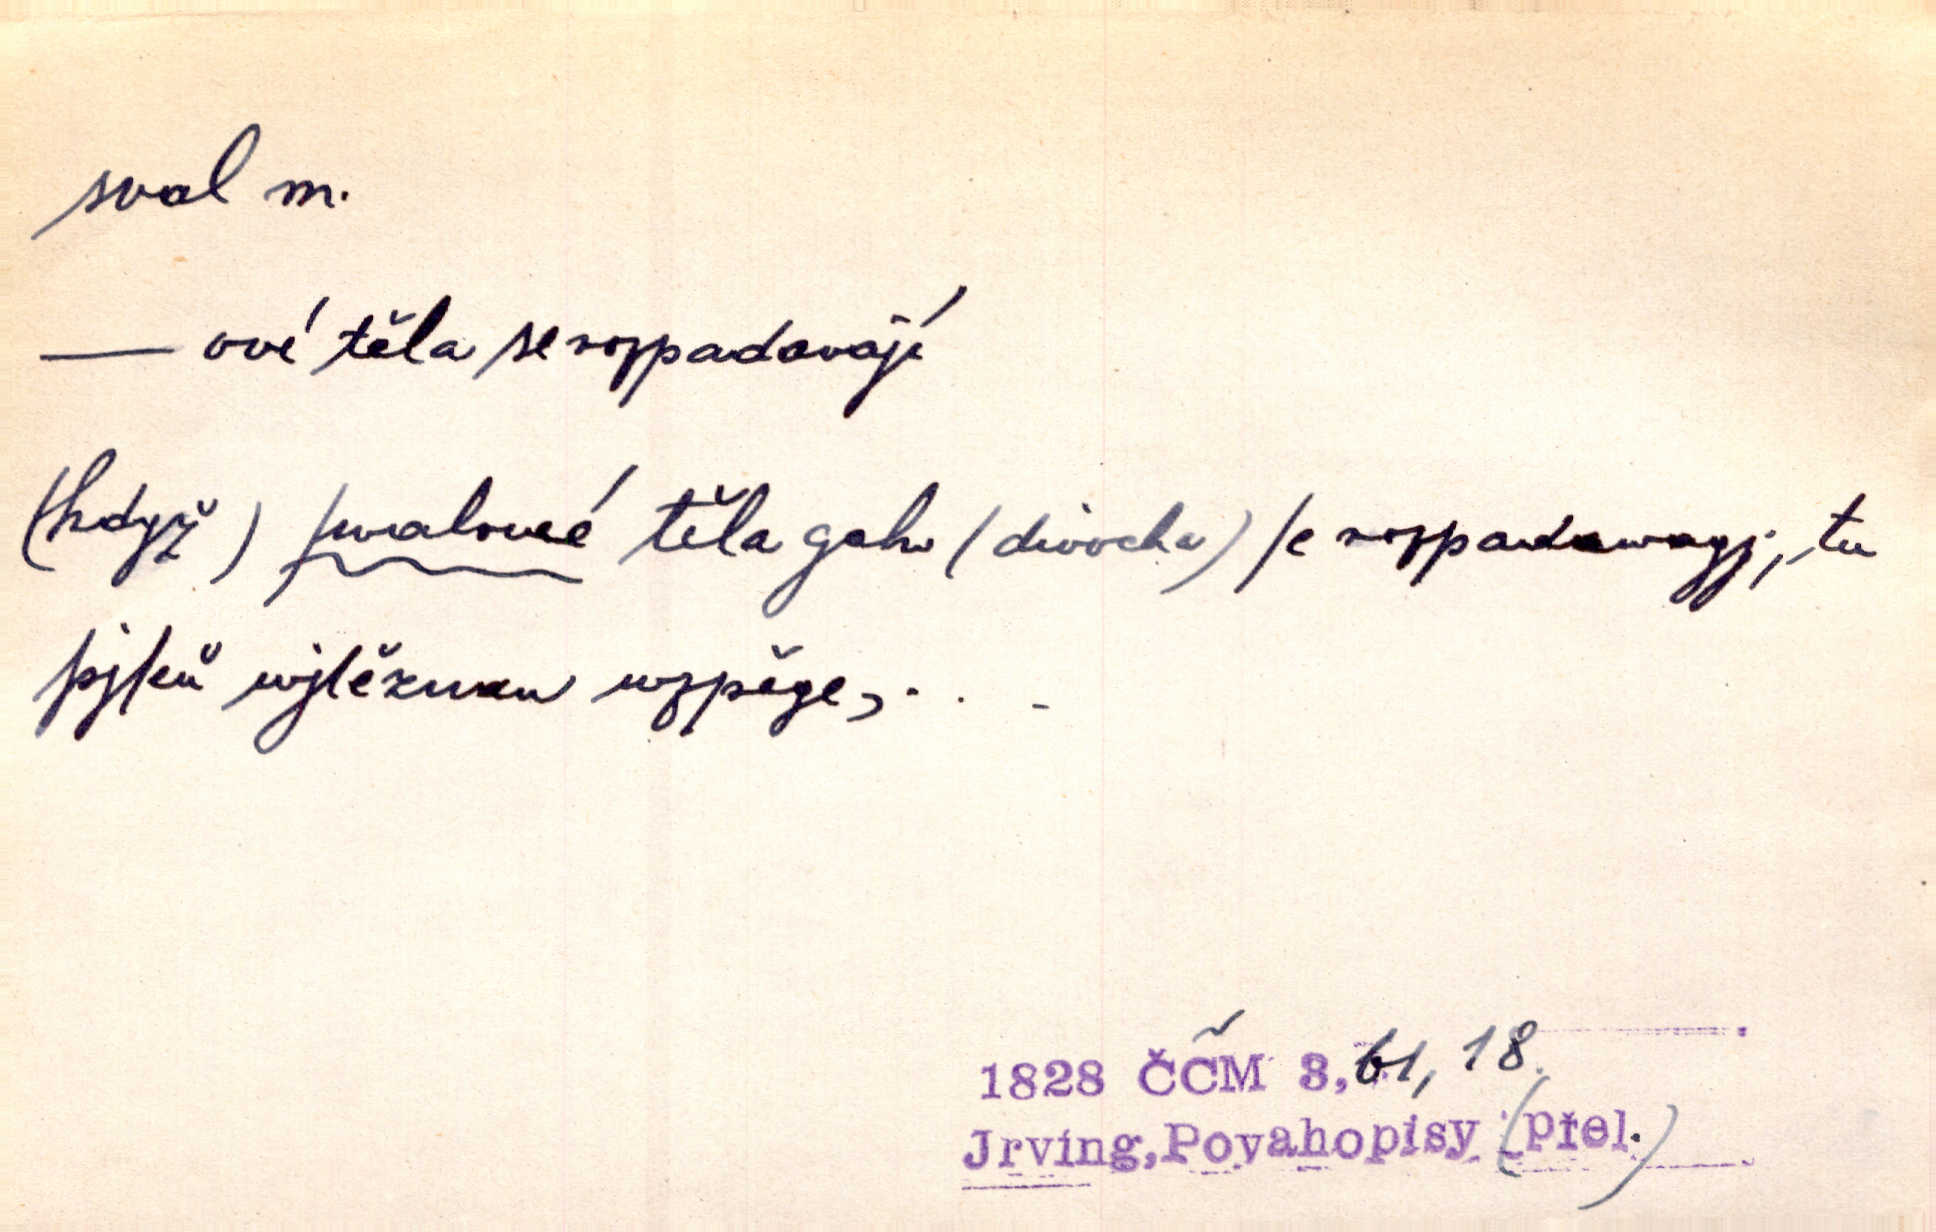 sval m.
— ové těla se rozpadávají
(když) ſwalowé těla geho (divocha) ſe rozpadawagj, tu
pjſeň wjtěznau wzpěge, . . -
1828 ČČM 3, b1, 18.
Jrving, Povahopisy (přel.)